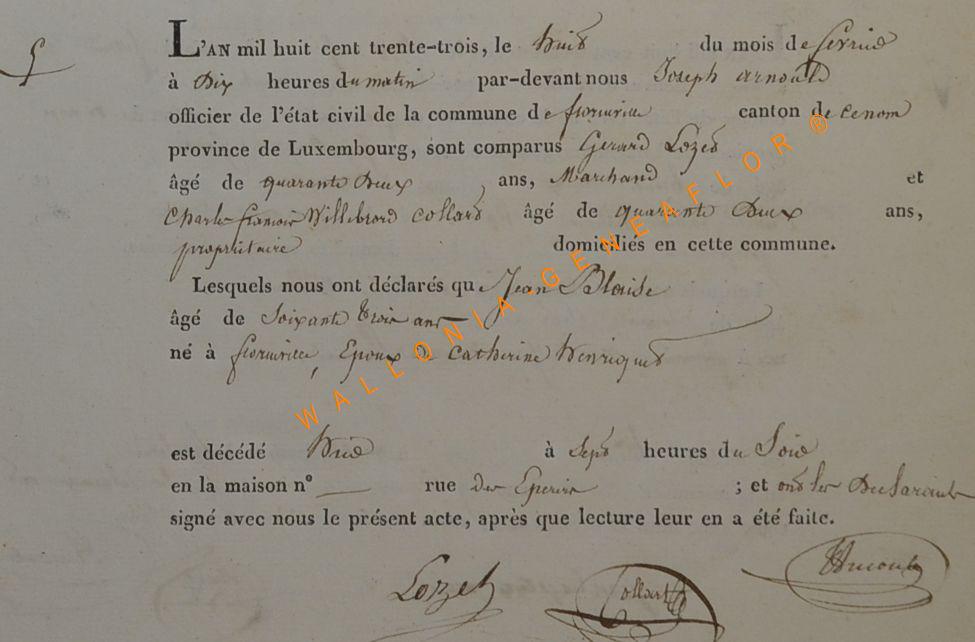 5
L'AN mil huit cent trente-trois, le huit du mois de fevrier
à Dix heures du matin par-devant nous Joseph arnould
officier de l'état civil de la commune de florenville canton de ce nom
province de Luxembourg, sont comparus Gerard Lozet
âgé de quarante Deux ans, Marchand et
Charles françois Willebrord collard âgé de quarante Deux ans,
proprietaire domiciliés en cette commune.
Lesquels nous ont déclarés que Jean Blaise
âgé de soixante trois ans
né à florenville, Epoux de Catherine henriquet
est décédé hier à sept heures du Soir
en la maison n° rue des ; et ont les Declarants
signé avec nous le présent acte, après que lecture leur en a été faite.
Lozet Collart
WALLONIA-GENEAFLOR ®